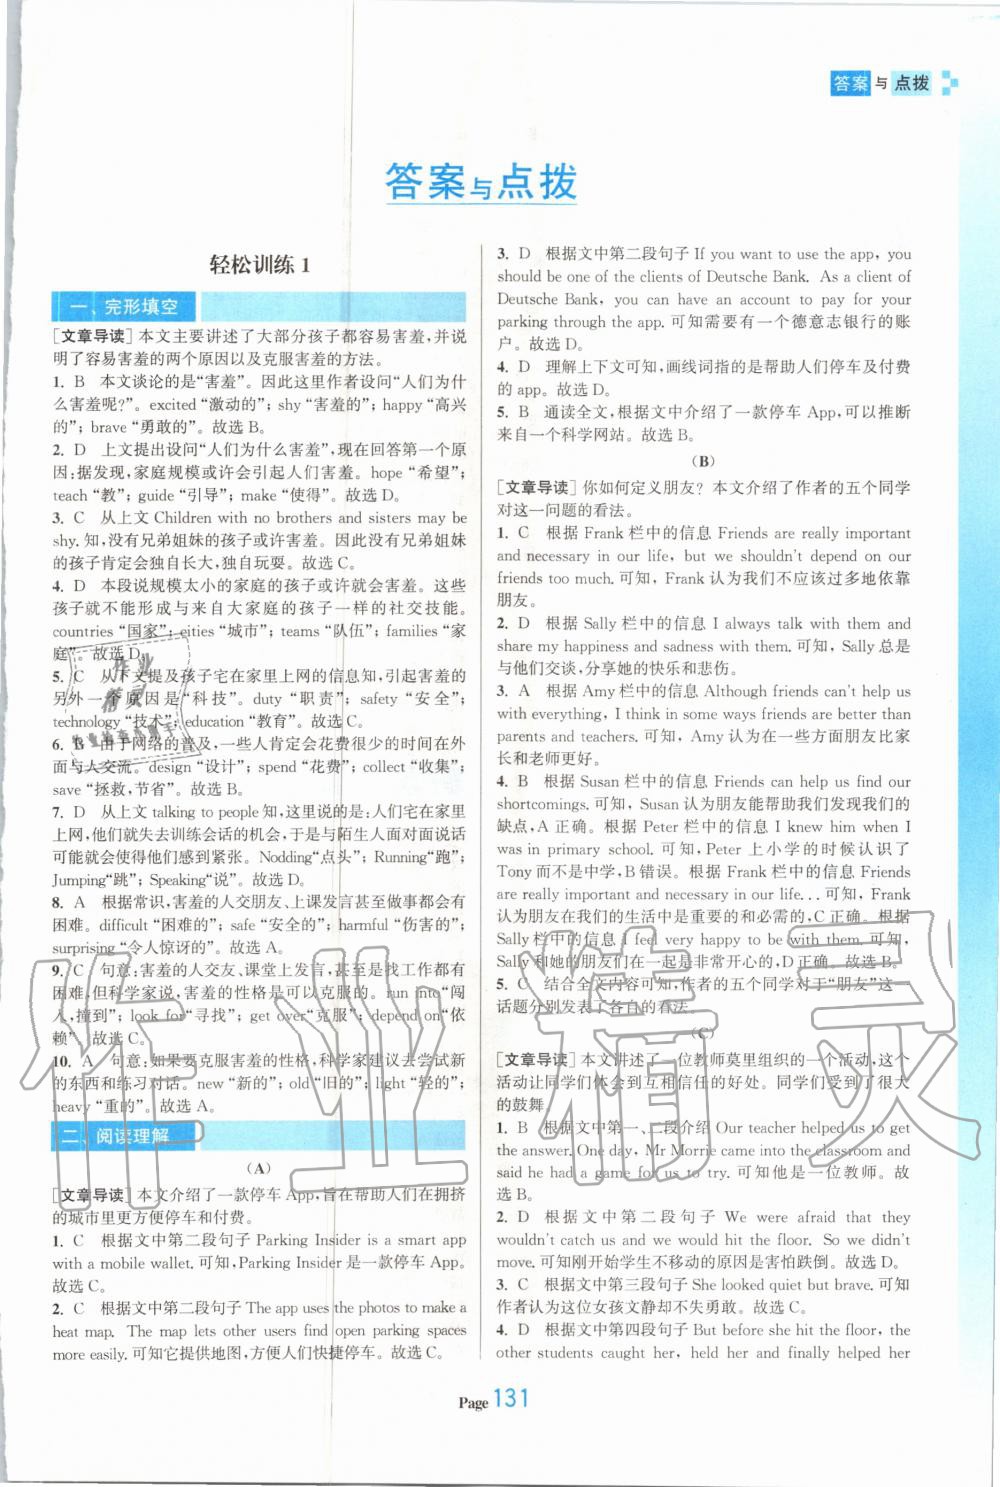 答案与点拨
答案与点拨
轻松训练 1
一、完形填空
[文章导读] 本文主要讲述了大部分孩子都容易害羞,并说
明了容易害羞的两个原因以及克服害羞的方法。
1. B 本文谈论的是“害羞”。因此这里作者设问“人们为什
么害羞呢?”。excited “激动的”; shy “害羞的”; happy “高兴
的”; brave “勇敢的”。故选 B。
2. D 上文提出设问“人们为什么害羞”,现在回答第一个原
因:据发现,家庭规模或许会引起人们害羞。hope “希望”;
teach “教”; guide “引导”; make “使得”。故选 D。
3. C 从上文 Children with no brothers and sisters may be
shy. 知,没有兄弟姐妹的孩子或许害羞。因此没有兄弟姐妹
的孩子肯定会独自长大,独自玩耍。故选 C。
4. D 本段说规模太小的家庭的孩子或许就会害羞。这些
孩子就不能形成与来自大家庭的孩子一样的社交技能。
countries “国家”; cities “城市”; teams “队伍”; families “家
庭”。故选 D。
5. C 从下文提及孩子宅在家里上网的信息知,引起害羞的
另外一个原因是“科技”。duty “职责”; safety “安全”;
technology “技术”; education “教育”。故选 C。
6. B 由于网络的普及,一些人肯定会花费很少的时间在外
面与人交流。design “设计”; spend “花费”; collect “收集”;
save “拯救,节省”。故选 B。
7. D 从上文 talking to people 知,这里说的是:人们宅在家里
上网,他们就失去训练会话的机会,于是与陌生人面对面说话
可能就会让他们感到紧张。Nodding“点头”; Running“跑”;
Jumping“跳”; Speaking“说”。故选 D。
8. A 根据常识,害羞的人交朋友、上课发言甚至做事都会有
困难。difficult “困难的”; safe “安全的”; harmful “伤害的”;
surprising “令人惊讶的”。故选 A。
9. C 句意:害羞的人交友、课堂上发言、甚至是找工作都有
困难,但科学家说,害羞的性格是可以克服的。run into“闯
入,撞到”; look for“寻找”; get over“克服”; depend on“依
赖”。故选 C。
10. A 句意:如果要克服害羞的性格,科学家建议去尝试新
的东西和练习对话。new “新的”; old “旧的”; light “轻的”;
heavy “重的”。故选 A。
二、阅读理解
(A)
[文章导读] 本文介绍了一款停车 App,旨在帮助人们在拥挤
的城市里更方便停车和付费。
1. C 根据文中第二段句子 Parking Insider is a smart app
with a mobile wallet. 可知,Parking Insider 是一款停车 App。
故选 C。
2. C 根据文中第二段句子 The app uses the photos to make a
heat map. The map lets other users find open parking spaces
more easily. 可知它提供地图,方便人们快捷停车。故选 C。
3. D 根据文中第二段句子 If you want to use the app, you
should be one of the clients of Deutsche Bank. As a client of
Deutsche Bank, you can have an account to pay for your
parking through the app. 可知需要有一个德意志银行的账
户。故选 D。
4. D 理解上下文可知,画线词指的是帮助人们停车及付费
的 app。故选 D。
5. B 通读全文,根据文中介绍了一款停车 App,可以推断
来自一个科学网站。故选 B。
(B)
[文章导读] 你如何定义朋友? 本文介绍了作者的五个同学
对这一问题的看法。
1. C 根据 Frank 栏中的信息 Friends are really important
and necessary in our life, but we shouldn't depend on our
friends too much. 可知, Frank 认为我们不应该过多地依靠
朋友。
2. D 根据 Sally 栏中的信息 I always talk with them and
share my happiness and sadness with them. 可知,Sally 总是
与他们交谈,分享她的快乐和悲伤。
3. A 根据 Amy 栏中的信息 Although friends can't help us
with everything, I think in some ways friends are better than
parents and teachers. 可知, Amy 认为在一些方面朋友比家
长和老师更好。
4. B 根据 Susan 栏中的信息 Friends can help us find our
shortcomings. 可知,Susan 认为朋友能帮助我们发现我们的
缺点,A 正确。根据 Peter 栏中的信息 I knew him when I
was in primary school. 可知, Peter 上小学的时候认识了
Tony 而不是中学,B 错误。根据 Frank 栏中的信息 Friends
are really important and necessary in our life... 可知, Frank
认为朋友在我们的生活中是重要的和必需的,C 正确。根据
Sally 栏中的信息 I feel very happy to be with them. 可知,
Sally 和她的朋友们在一起是非常开心的,D 正确。故选 B。
5. C 结合全文内容可知,作者的五个同学对于“朋友”这一
话题分别发表了各自的看法。
(C)
[文章导读] 本文讲述了一位教师莫里组织的一个活动,这个
活动让同学们体会到互相信任的好处。同学们受到了很大
的鼓舞。
1. B 根据文中第一、二段介绍 Our teacher helped us to get
the answer. One day, Mr Morrie came into the classroom and
said he had a game for us to try. 可知他是一位教师。故
选 B。
2. D 根据文中第二段句子 We were afraid that they
wouldn't catch us and we would hit the floor. So we didn't
move. 可知刚开始学生不移动的原因是害怕跌倒。故选 D。
3. C 根据文中第三段句子 She looked quiet but brave. 可知
作者认为这位女孩文静却不失勇敢。故选 C。
4. D 根据文中第四段句子 But before she hit the floor, the
other students caught her, held her and finally helped her
Page 131
作业精灵